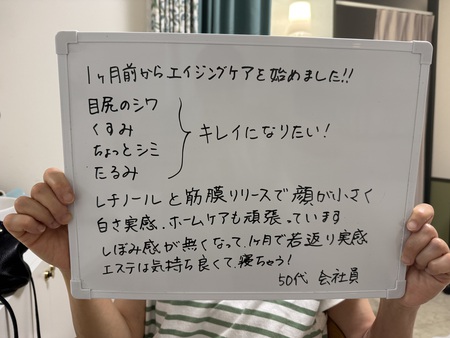 1ヶ月前からエイジングケアを始めました!!
目尻のシワ
くすみ
ちょっとシミ
たるみ
キレイになりたい!
レチノールと筋膜リリースで顔が小さく
白さ実感、ホームケアも頑張っています
しぼみ感が無くなって、1ヶ月で若返り実感
エステは気持ち良くて、寝ちゃう!
50代 会社員